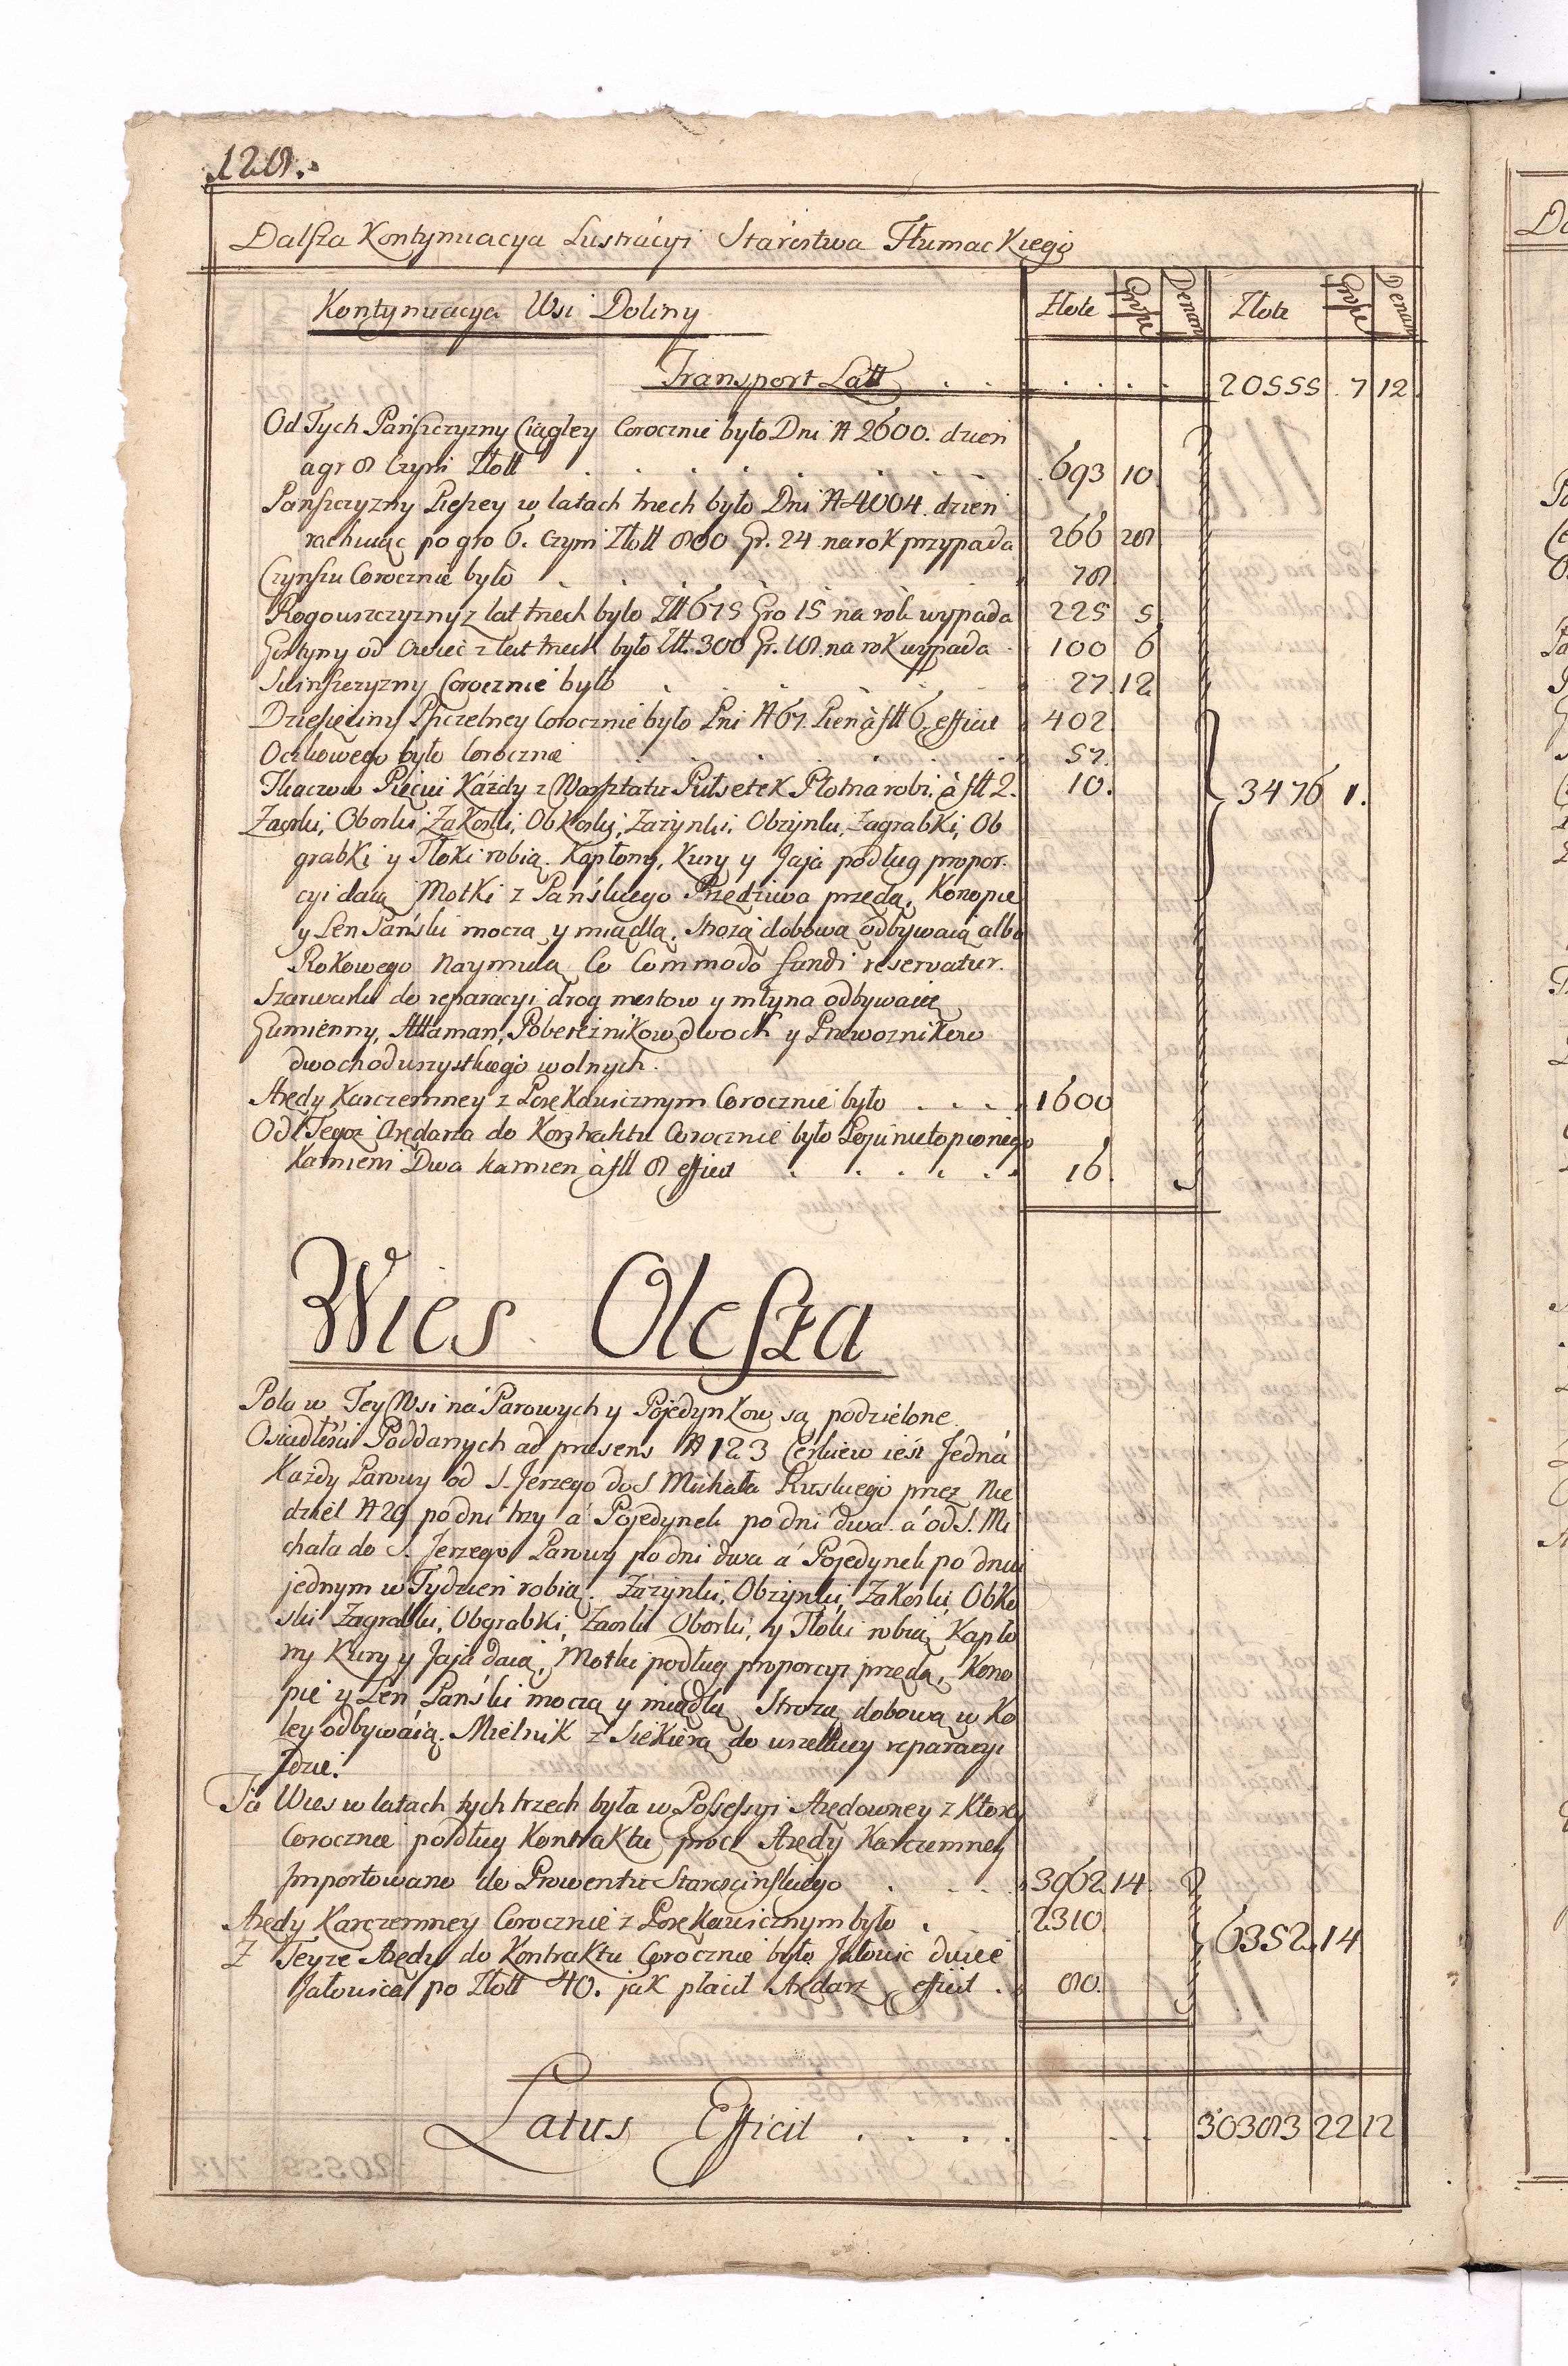 128.
Dalsza Kontynuacya Lustracyi Starostwa Tłumackiego
Kontynuacya Wsi Doliny
Złote Grosze Denar Złote Grosze Denar
Transport Latt . . . . . . . 20555 7 12
Od Tych Pańszczyzny Ciągłey Corocznie było Dni N 2600. dzień
a gr 8 Czyni Złott . . . . . . 693 10
Pańszczyzny Pieszey w latach trzech było Dni N 4004. dzień
rachuiąc po gro 6. Czyni Złott 800 Gr. 24 na rok przypada 266 28
Czynszu Corocznie było . . . . 78
Rogowszczyzny z lat trzech było Złt 675 Gro 15 na rok wypada 225 5
Gostyny od Owiec z lat trzech było Złt. 300 Gr. 18. na rok wypada 100 6
Swinszczyzny Corocznie było . . . . 27 12
Dziesięciny Pszczelney Corocznie było Pni N 67. Pień à fll 6. efficit 402
Oczkowego było Corocznie . . . . 57.
Tkaczow Pięciu Każdy z Warsztatu Pułsetek Płotna robi. à fll 2. 10.
3476 1.
Zaorki, Oborki, Zakoski, Obkoski, Zazynki, Obzynki, Zagrabki, Ob
grabki y Tłoki robią. Kapłony, Kury y Jaja podług propor-
cyi daią, Motki z Pańskiego Przędziwa przędą, Konopie
y Len Pański moczą y międlą. Strożą dobową odbywaią albo
Rokowego naymuią Co Commodo fundi reservatur.
Szarwarki do reparacyi drog mostow y młyna odbywaią
Gumienny, Attaman, Pobereżnikow dwoch y Przewoznikow
dwoch od wszystkiego wolnych.
Arędy Karczemney z Porękawicznym Corocznie było . . . . 1600
Od Tegoż Arędarza do Kontraktu Corocznie było Łoju nietopionego
Kamieni Dwa kamien à fll 8 efficit . . . . . 16.
Wies Olesza
Pola w Tey Wsi na Parowych y Pojedynkow są podzielone.
Osiadłości Poddanych ad præsens N 123 Cerkiew iest Jedna
Każdy Parowy od S. Jerzego do S Michała Ruskiego przez Nie
dziel N 29 po dni trzy a Pojedynek po dni dwa. a od S. Mi
chała do S. Jerzego Parowy po dni dwa a Pojedynek po dniu
jednym w Tydzień robią. Zazynki, Obzynki, Zakoski, Obko
ski Zagrabki, Obgrabki, Zaorki Oborki, y Tłoki robią Kapło
ny Kury y Jaja daią, Motki podług proporcyi przędą, Kono
pie y Len Pański moczą y międlą Strozą dobową w Ko
ley odbywaią. Mielnik z Siekierą do wszelkiey reparacyi
Idzie.
Ta Wies w latach tych trzech była w Possessyi Arędowney z Ktorey
Corocznie podług Kontraktu procz Arędy Karczemney
Importowano do Prowentu Starościnskiego . . . . 3962 14
Arędy Karczemney Corocznie z Porękawicznym było . . 2310
6352 14
Z Teyze Arędy do Kontraktu Corocznie było Jałowic dwie
Jałowica po Złott 40. jak płacił Arędarz efficit . 80.
Latus Efficit . . . . 30383 22 12